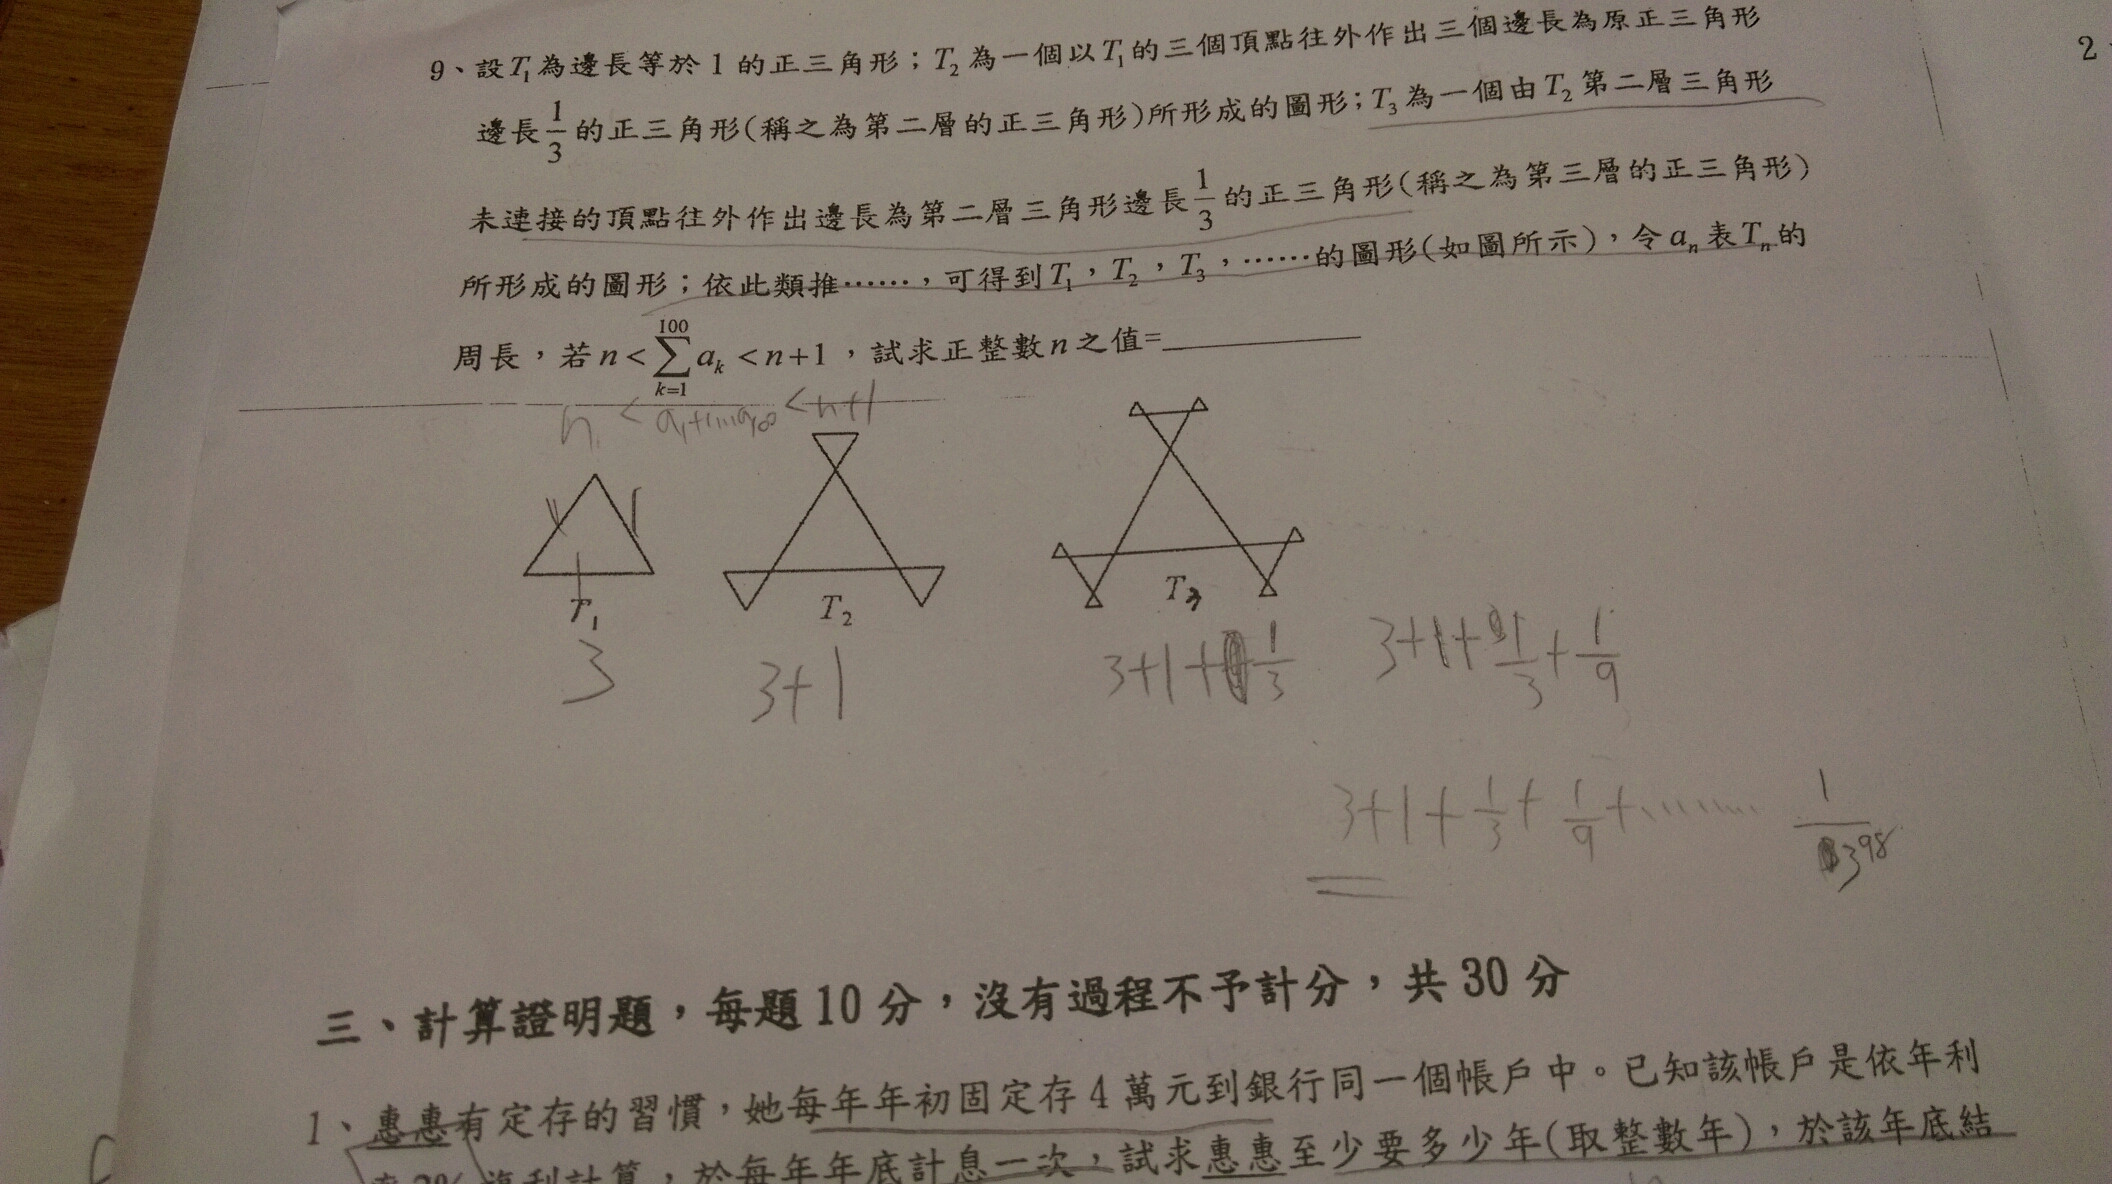 9、設T₁為邊長等於1的正三角形；T₂為一個以T₁的三個頂點往外作出三個邊長為原正三角形
邊長1/3的正三角形(稱之為第二層的正三角形)所形成的圖形；T₃為一個由T₂第二層三角形
未連接的頂點往外作出邊長為第二層三角形邊長1/3的正三角形(稱之為第三層的正三角形)
所形成的圖形；依此類推……，可得到T₁，T₂，T₃，……的圖形(如圖所示)，令aₙ表Tₙ的
周長，若n<∑_{k=1}^{100} aₖ<n+1，試求正整數n之值=
n < a₁+...a₁₀₀ < n+1
T₁
T₂
T₃
3
3+1
3+1+1/3
3+1+1/3+1/9
3+1+1/3+1/9+........ 1/3⁹⁸
三、計算證明題，每題10分，沒有過程不予計分，共30分
1、惠惠有定存的習慣，她每年年初固定存4萬元到銀行同一個帳戶中。已知該帳戶是依年利
複利計算，於每年年底計息一次，試求惠惠至少要多少年(取整數年)，於該年底結
2